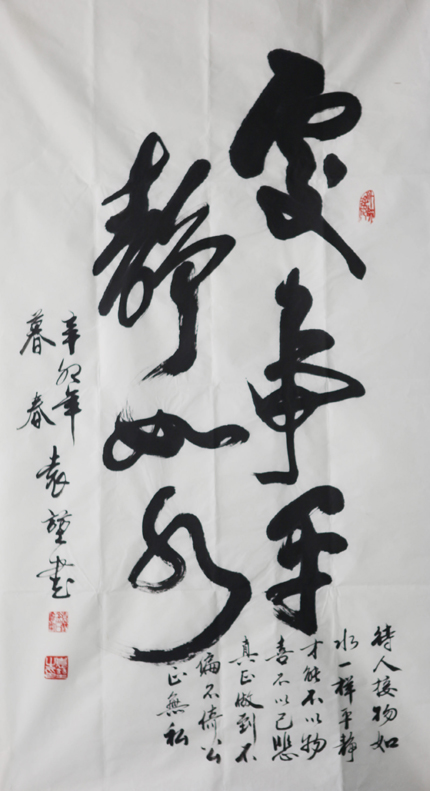 處事平
靜如水
待人接物如
水一样平静
才能不以物
喜不以己悲
真正做到不
偏不倚公
正無私
辛卯年
暮春
袁瑾书